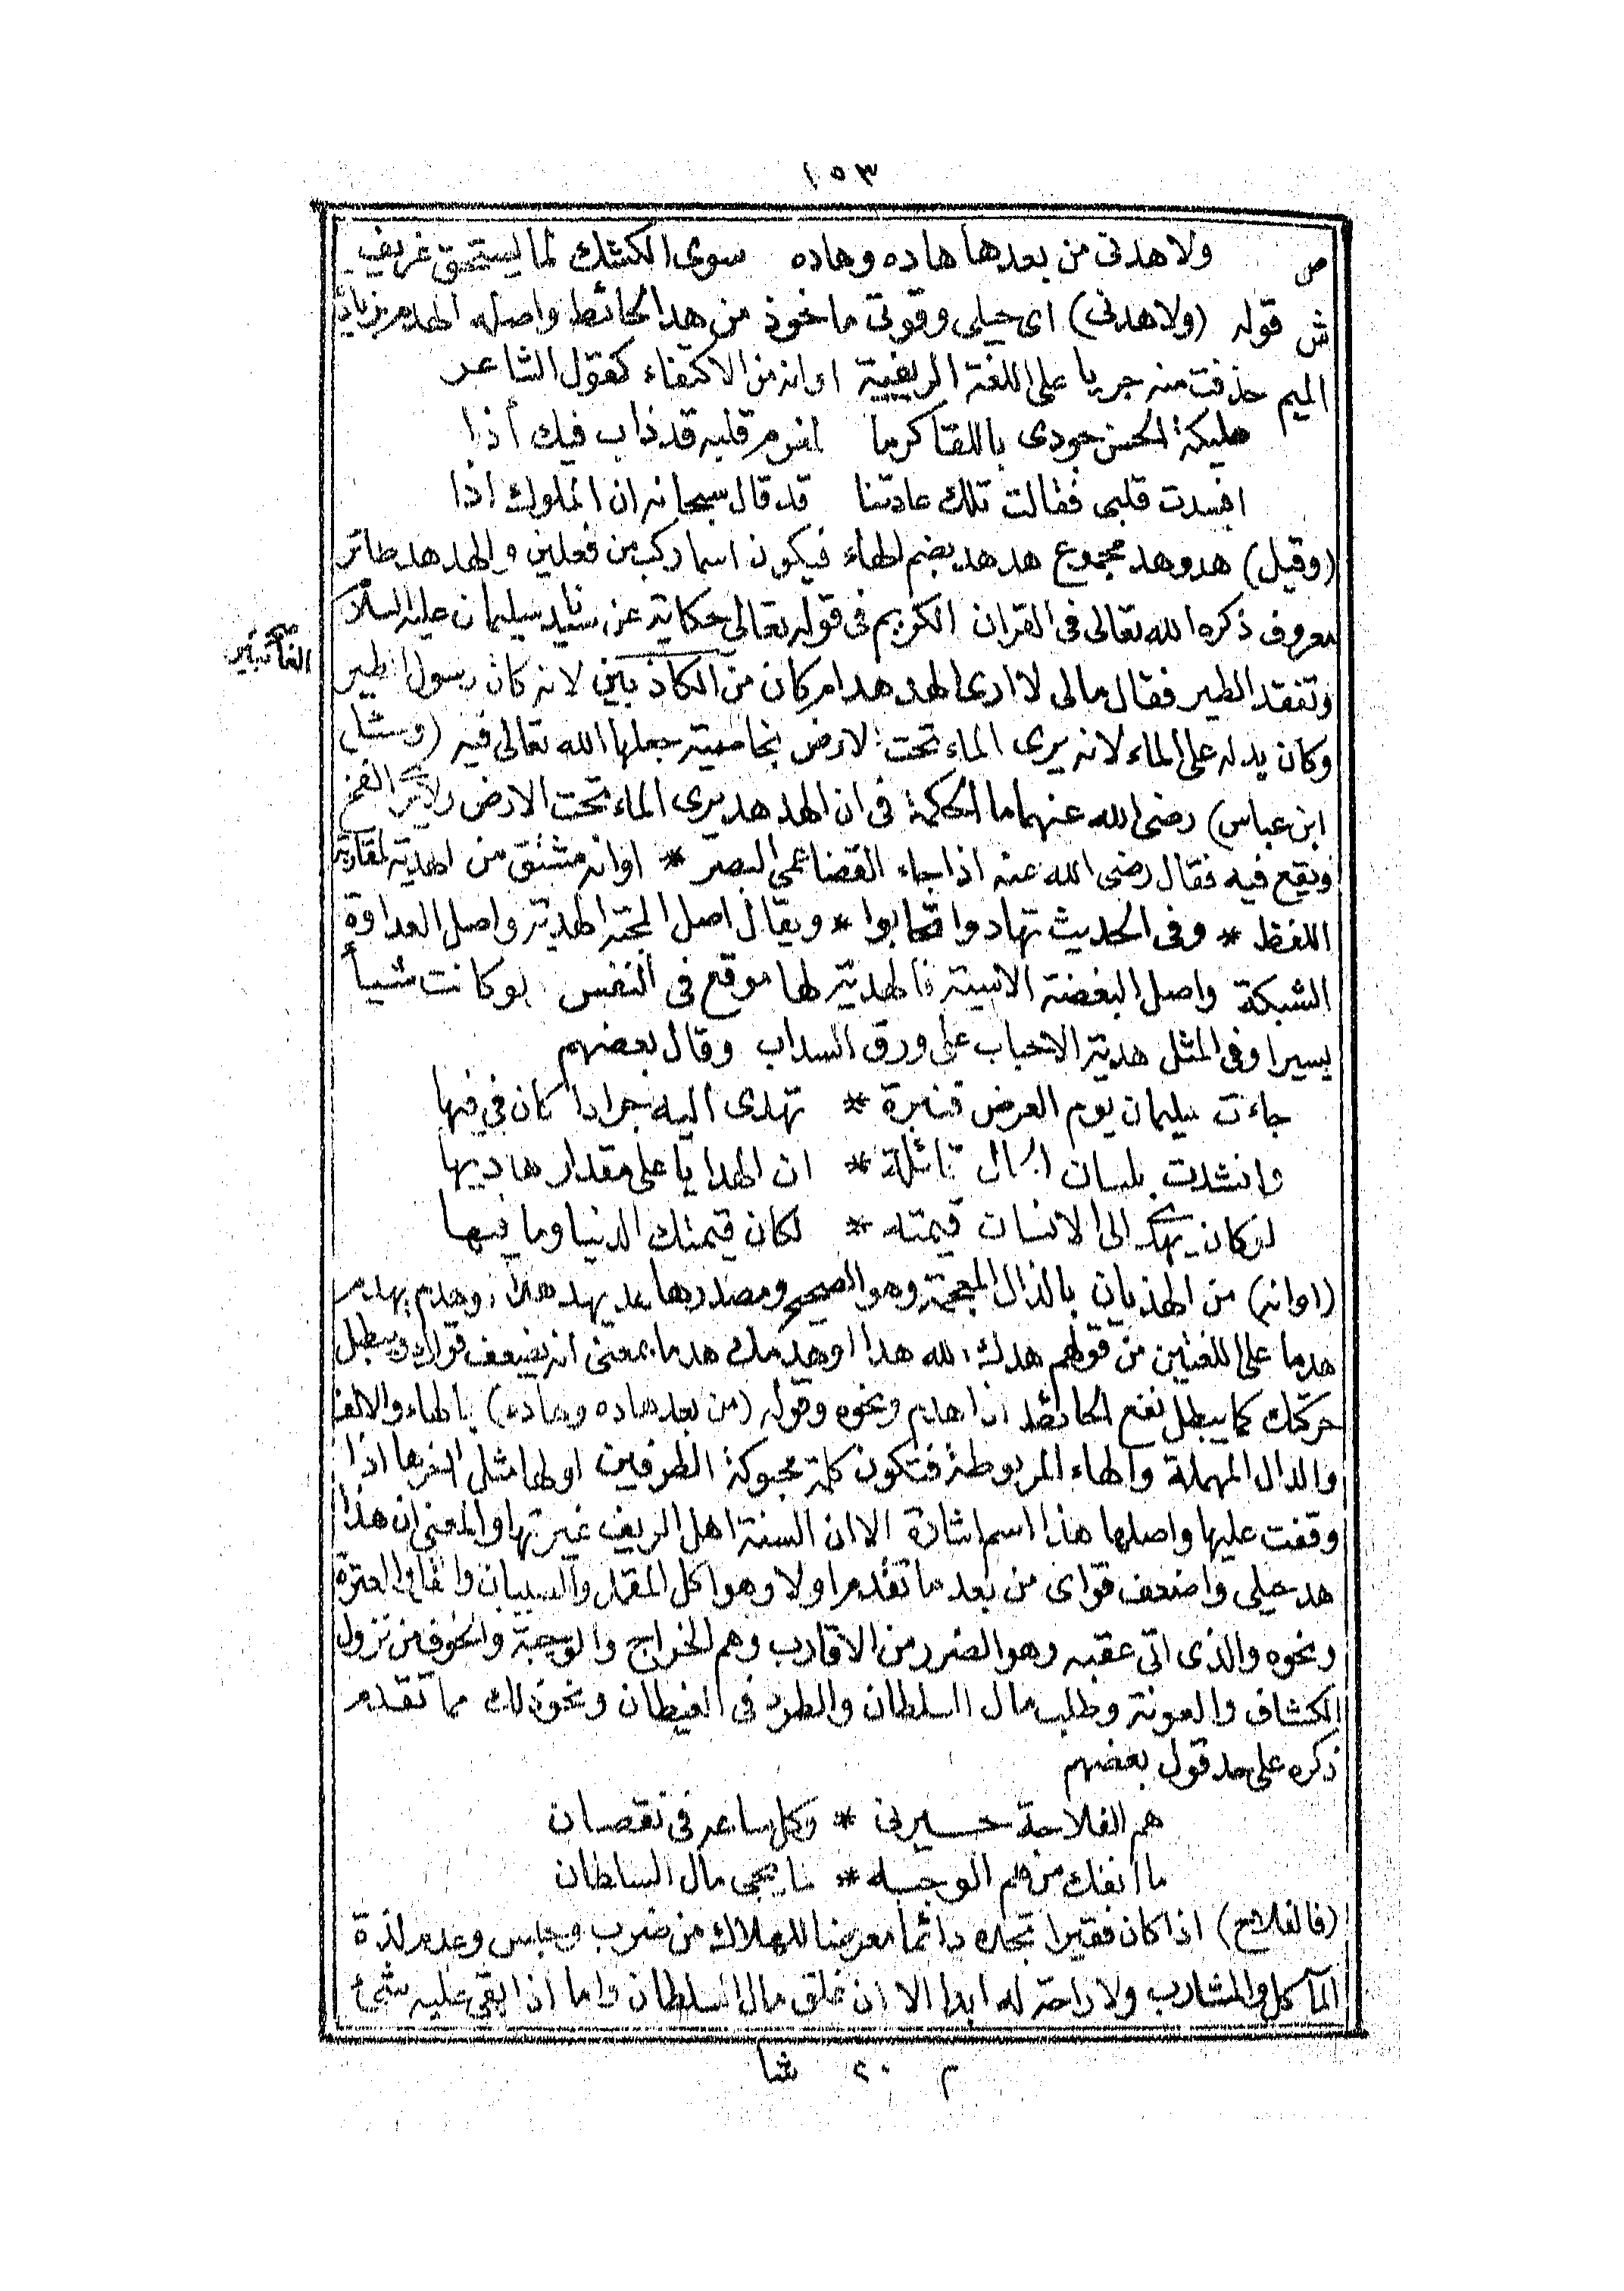 ١٥٣
ص ولا هدنى من بعدها هاده وهاده سوى الكشك لما يستحق غريف
ش قوله (ولا هدنى) اى حيلى وقوتى ماخوذ من هد الحائط واصله الهدم بزيادة
الميم حذفت منه جريا على اللغة الريفية او انه من الاكتفاء كقول الشاعر
مليكة الحسن جودى باللقا كرما لمغرم قلبه قد ذاب فيك أذا
افسدت قلبى فقالت تلك عادتنا قد قال سبحانه ان الملوك اذا
(وقيل) هد وهد مجموع هدهد بضم الهاء فيكون اسما ركب من فعلين والهدهد طائر
معروف ذكره الله تعالى فى القران الكريم فى قوله تعالى حكاية عن سيدنا سليمان عليه السلام
وتفقد الطير فقال مالى لا ارى الهدهد ام كان من الكاذبين لانه كان رسول الطير
الغائبين صح
وكان يدله على الماء لانه يرى الماء تحت الارض بخاصية جعلها الله تعالى فيه (وسئل
ابن عباس) رضى الله عنهما ما الحكمة فى ان الهدهد يرى الماء تحت الارض ولا يرى الفخ
ويقع فيه فقال رضى الله عنه اذا جاء القضا عمى البصر * او انه مشتق من الهدية لمقاربة
اللفظ * وفى الحديث تهادوا تحابوا * ويقال اصل المحبة الهدية واصل العداوة
الشبكة واصل البغضة الانيية فالهدية لها موقع فى النفس لو كانت شيأ
يسيرا وفى المثل هدية الاحباب على ورق السداب وقال بعضهم
جاءت سليمان يوم العرض قنبرة * تهدى اليه جرادا كان فى فيها
وانشدت بلسان الحال قائلة * ان الهدايا على مقدار هاديها
لو كان يهدى الى الانسان قيمته * لكان قيمتك الدنيا وما فيها
(او انه) من الهذيان بالذال المعجمة وهو الصحيح ومصدرها هد يهد هدا، وهدم يهدم
هدما على اللغتين من قولهم هدك الله هدا او هدمك هدما بمعنى انه يضعف قواك ويبطل
حركتك كما يبطل نفع الحائط اذا هدم ونحوه وقوله (من بعد هاده وهاده) بالهاء والالف
والدال المهملة والهاء المربوطة فتكون كلمة محبوكة الطرفين اولها مثل اخرها اذا
وقفت عليها واصلها هذا اسم اشارة الا ان السنة اهل الريف غيرتها والمعنى ان هذا
هد حيلى واضعف قواى من بعد ما تقدم اولا وهو اكل القمل والسيبان والقاوالعترة
ونحوه والذى اتى عقبه وهو الضرر من الاقارب وهم الخراج والوجبة والخوف من نزول
الكشاف والعونة وطلب مال السلطان والطرد فى الغيطان ونحو ذلك مما تقدم
ذكره على حد قول بعضهم
هم الفلاحة حسيرنى * وكل ساعه فى نقصان
ما انفك من هم الوجبه * لما يجى مال السلطان
(فالفلاح) اذا كان فقيرا تجده دائما معرضا للهلاك من ضرب وحبس وعدم لذة
المآكل والمشارب ولا راحة له ابدا الا ان غلق مال السلطان واما اذا بقى عليه شئ
م ٢٠ شا